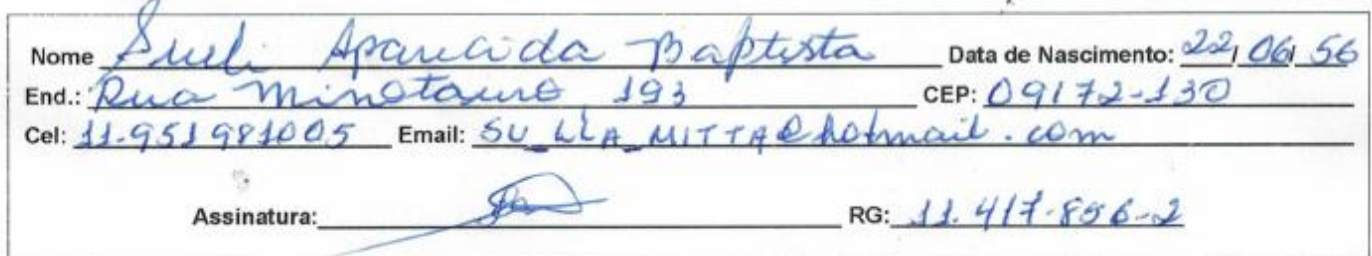 Nome Sueli Aparecida Baptista Data de Nascimento: 22/06/56
End.: Rua Minotauro 193 CEP: 09172-130
Cel: 11-951981005 Email: SU_LLA_MITTA@hotmail.com
Assinatura: RG: 11.417.856-2